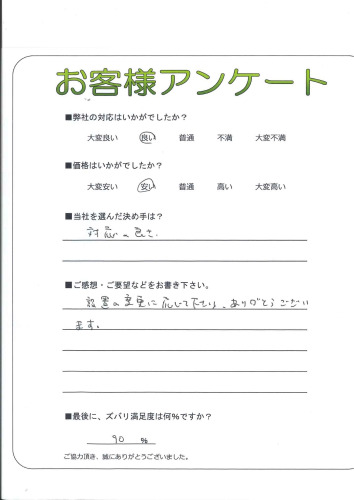 お客様アンケート
■弊社の対応はいかがでしたか？
大変良い 良い 普通 不満 大変不満
■価格はいかがでしたか？
大変安い 安い 普通 高い 大変高い
■当社を選んだ決め手は？
対応の良さ
■ご感想・ご要望などをお書き下さい。
設置の変更に応じて下さり、ありがとうござい
ます。
■最後に、ズバリ満足度は何％ですか？
90 ％
ご協力頂き、誠にありがとうございました。